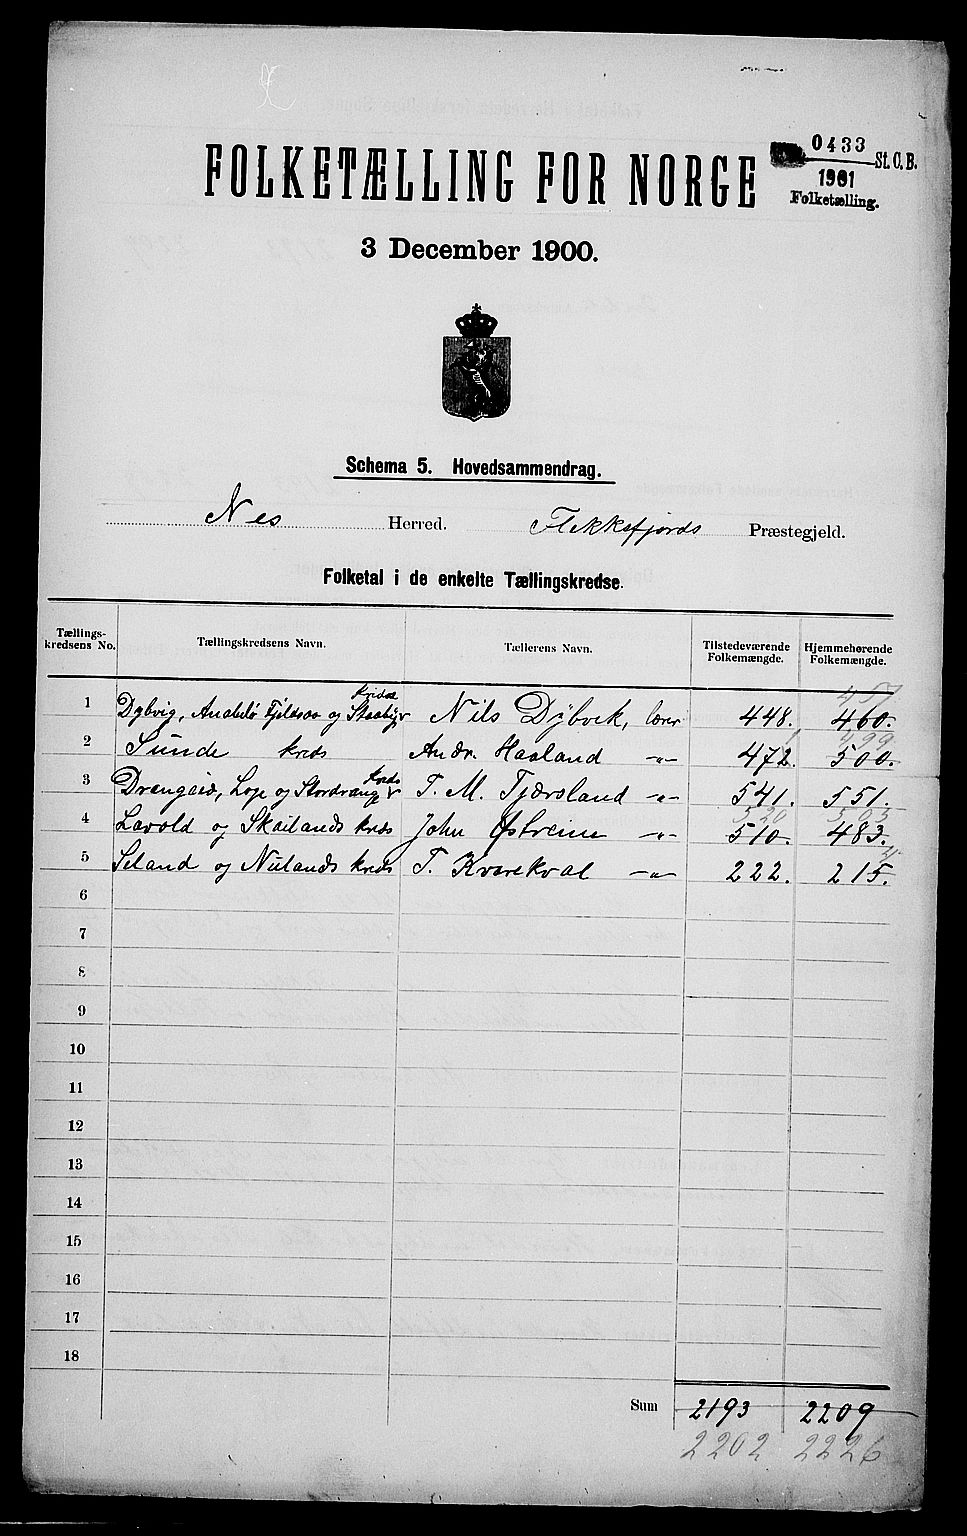 FOLKETÆLLING FOR NORGE
0433 St. C. B.
1901
Folketælling.
3 December 1900.
Schema 5. Hovedsammendrag.
Nes Herred. Flekkefjords Præstegjeld.
Folketal i de enkelte Tællingskredse.
Tællings-kredsens No. Tællingskredsens Navn. Tællerens Navn. Tilstedeværende Folkemængde. Hjemmehørende Folkemængde.
457
1 Dybvig, og kreds Nils Dybvik, lærer 448. 460.
1 499
2 Sunde kreds Andr. Haaland -"- 472. 500.
3 Drangeid, Loge og Stordrange kreds T. M. Tjørsland -"- 541. 551.
520
4 Lavold og Skailands kreds John Østreim -"- 510. 483.
5 Seland og Nulands kreds T. Kvarekval -"- 222. 215.
6
7
8
9
10
11
12
13
14
15
16
17
18
Sum 2193 2209
2202 2226